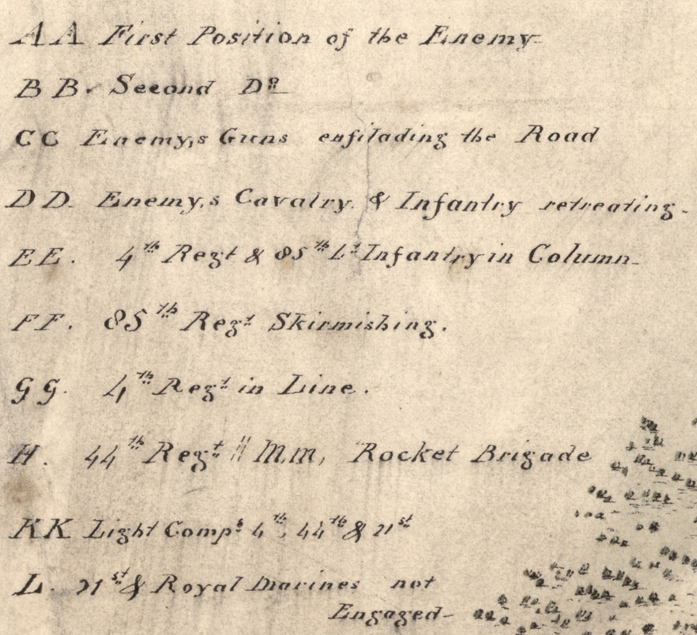 AA First Position of the Enemy
BB. Second Dº
CC Enemy,s Guns enfilading the Road
DD. Enemy,s Cavalry. & Infantry retreating.
EE. 4th Regt & 85th Lt Infantry in Column
FF. 85th Regt Skirmishing.
GG. 4th Regt in Line.
H. 44th Regt || MM, Rocket Brigade
KK Light Comps 4th, 44th & 21st
L. 21st & Royal Marines not
Engaged